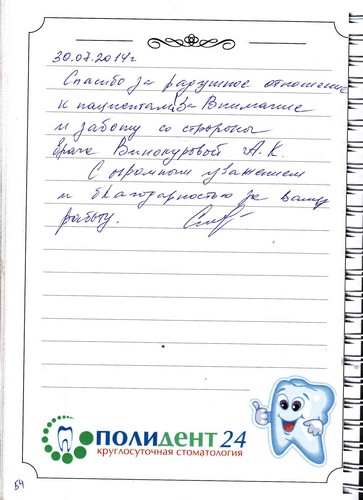 30.07.2014г
Спасибо за радушное отношение
к пациентам, за внимание
и заботу со стороны
врача Винокуровой А.К.
С огромным уважением
и благодарностью за вашу
работу.
ПОЛИДЕНТ 24
круглосуточная стоматология
54